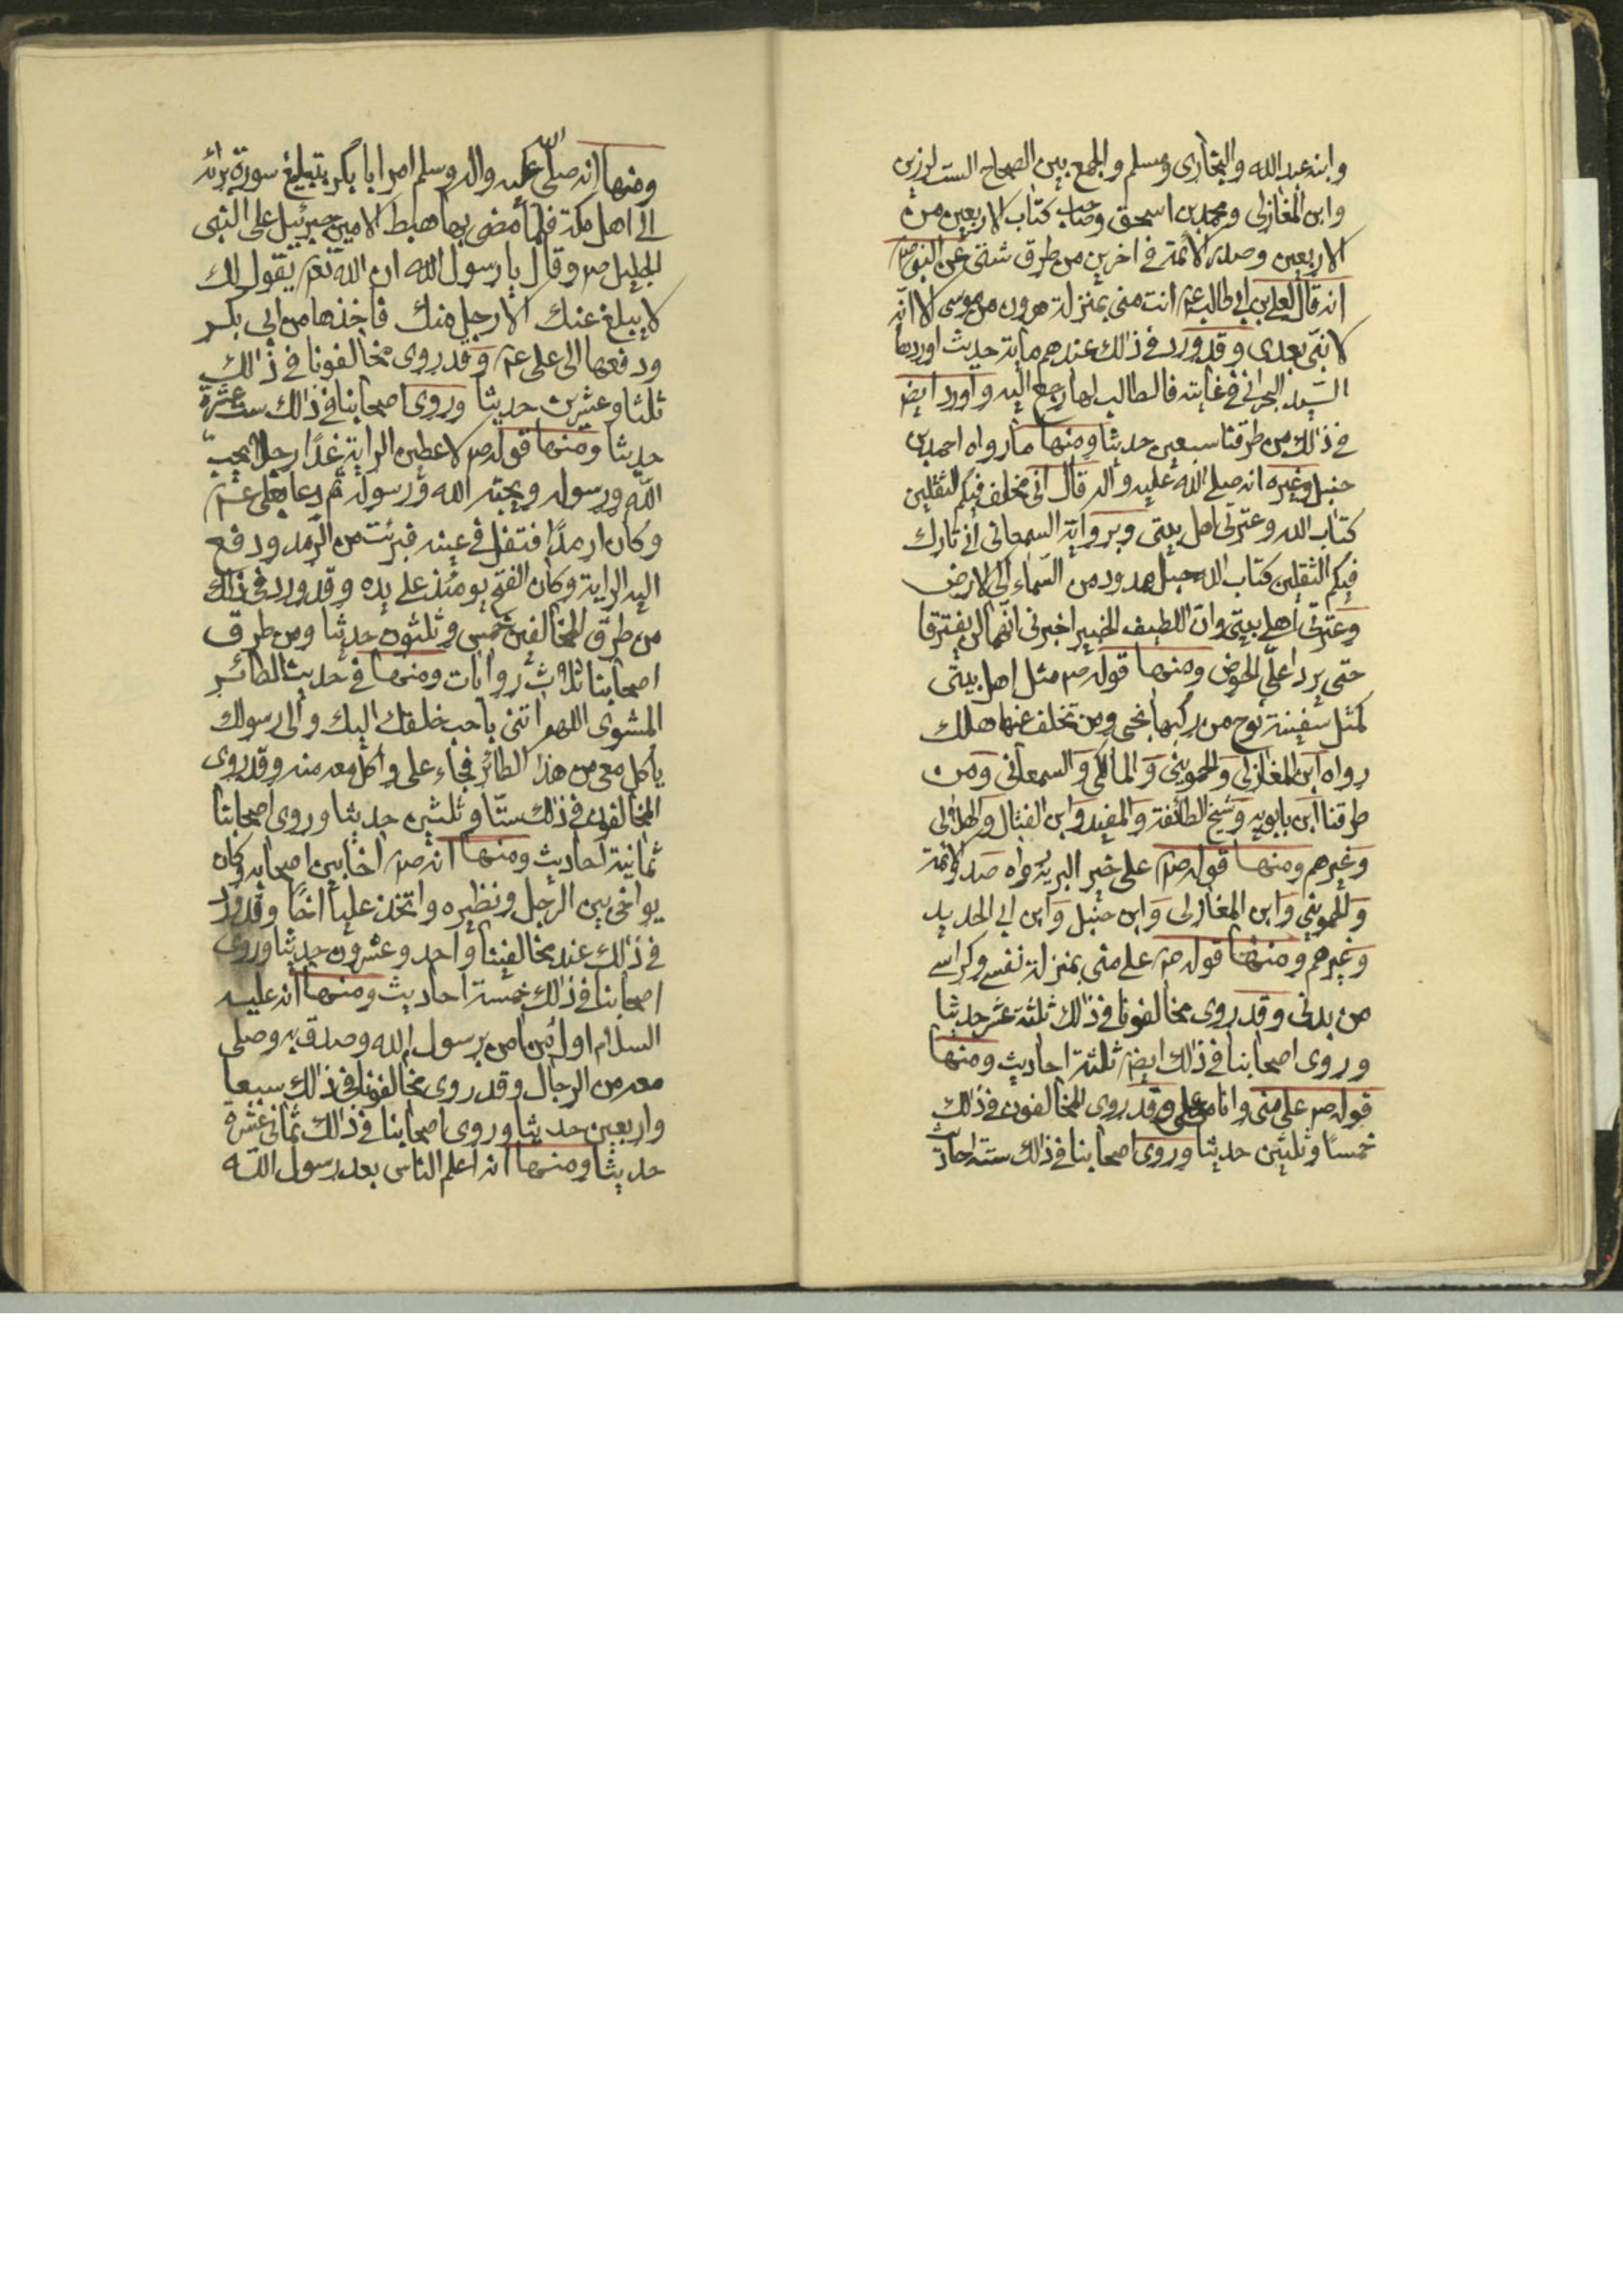 وابنه عبد الله والبخاري ومسلم والجمع بين الصحاح الست لرزين
وابن المغازلي ومحمد بن اسحق وصاحب كتاب الاربعين من
الاربعين وصدر الائمة في اخرين من طرق شتى عن النبي ص
انه قال لعلي بن ابي طالب ع انت مني بمنزلة هرون من موسى الا انه
لا نبي بعدي وقد ورد في ذلك عندهم ماية حديث اوردها
السيد البحراني في غايته فالطالب لها رجع اليه واورد ايض
في ذلك من طرقنا سبعين حديثا ومنها ما رواه احمد بن
حنبل وغيره انه صلى الله عليه واله قال اني مخلف فيكم الثقلين
كتاب الله وعترتي اهل بيتي وبرواية السمعاني اني تارك
فيكم الثقلين كتاب الله حبل ممدود من السماء الى الارض
وعترتي اهل بيتي وان اللطيف الخبير اخبرني انهما لن يفترقا
حتى يردا علي الحوض ومنها قوله ص مثل اهل بيتي
كمثل سفينة نوح من ركبها نجى ومن تخلف عنها هلك
رواه ابن المغازلي والحمويني والمالكي والسمعاني ومن
طرقنا ابن بابويه وشيخ الطائفة والمفيد وابن الفتال والهلالي
وغيرهم ومنها قوله ص علي خير البرية رواه صدر الائمة
والحمويني وابن المغازلي وابن حنبل وابن ابي الحديد
وغيرهم ومنها قوله ص علي مني بمنزلة نفسي وكراسي
من بدني وقد روى مخالفونا في ذلك ثلثة عشر حديثا
وروى اصحابنا في ذلك ايض ثلثة احاديث ومنها
قوله ص علي مني وانا من علي وقد روى المخالفون في ذلك
خمسا وثلثين حديثا وروى اصحابنا في ذلك ستة احاديث
ومنها انه صلى الله عليه واله وسلم امر ابا بكر بتبليغ سورة برائه
الى اهل مكة فلما مضى بها هبط الامين جبرئيل على النبي
الجليل ص وقال يا رسول الله ان الله تع يقول لك
لا يبلغ عنك الا رجل منك فاخذها من ابي بكر
ودفعها الى علي ع وقد روى مخالفونا في ذلك
ثلثا وعشرين حديثا وروى اصحابنا في ذلك ست عشرة
حديثا ومنها قوله ص لاعطين الراية غدا رجلا يحب
الله ورسوله ويحبه الله ورسوله ثم دعا بعلي ع
وكان ارمدا فتفل في عينه فبرئت من الرمد ودفع
اليه الراية وكان الفتح يومئذ على يده وقد ورد في ذلك
من طرق المخالفين خمس وثلثون حديثا ومن طرق
اصحابنا ثلاث روايات ومنها في حديث الطائر
المشوي اللهم اتني باحب خلقك اليك والى رسولك
ياكل معي من هذا الطائر فجاء علي واكل معه منه وقد روى
المخالفون في ذلك ستا وثلثين حديثا وروى اصحابنا
ثمانية احاديث ومنها انه ص اخا بين اصحابه وكان
يواخي بين الرجل ونظيره واتخذ عليا اخا وقد ورد
في ذلك عند مخالفينا واحد وعشرون حديثا وروى
اصحابنا في ذلك خمسة احاديث ومنها انه عليه
السلام اول من امن برسول الله وصدق به وصلى
معه من الرجال وقد روى مخالفونا في ذلك سبعا
واربعين حديثا وروى اصحابنا في ذلك ثماني عشرة
حديثا ومنها انه اعلم الناس بعد رسول الله